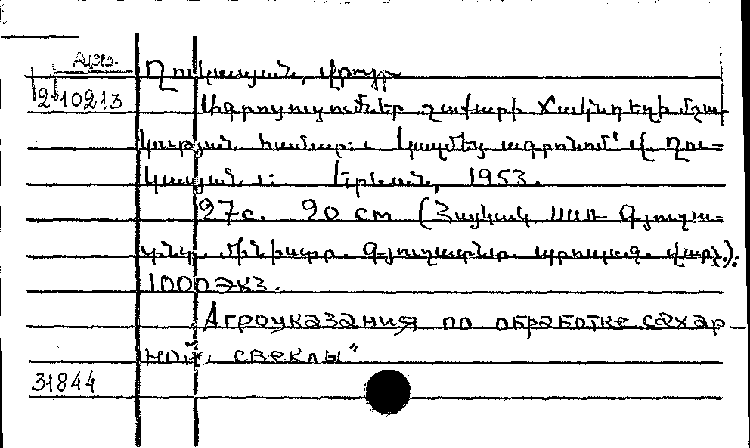 Арм. Ղուկասյան, Վրույր
210213 Ագրոցուցումներ շաքարի ճակնդեղի մշա-
կության համար։ Կազմեց ագրոնոմ՝ Վ. Ղու-
կասյան։ Երևան, 1953.
27с. 20 см (Հայկակ. ՍՍՌ Գյուղա-
տնտ. մինիստր. Գյուղատնտ. պրոպագ. վարչ.).
1000 экз.
Агроуказания по обработке сахар-
ной свеклы"
31844